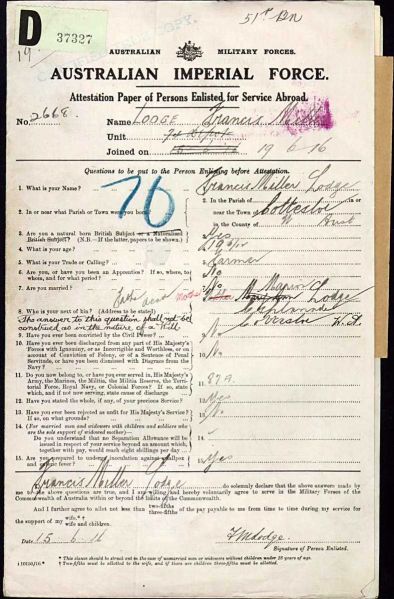 51st Bn
D 37327
CERTIFIED COPY.
19
AUSTRALIAN MILITARY FORCES.
AUSTRALIAN IMPERIAL FORCE.
Attestation Paper of Persons Enlisted for Service Abroad.
No. 2668. Name LODGE Francis Miller
Unit
Joined on 19 6 16
Questions to be put to the Person Enlisting before Attestation.
76
1. What is your Name? 1. Francis Miller Lodge
2. In or near what Parish or Town were you born? 2. In the Parish of Cottesloe in or
near the Town of
in the County of W Aust
3. Are you a natural born British Subject or a Naturalised
British Subject? (N.B.—If the latter, papers to be shown.) 3. Yes
4. What is your age? 4.
5. What is your Trade or Calling? 5. Farmer
6. Are you, or have you been an Apprentice? If so, where, to
whom, and for what period? 6. No
7. Are you married? 7. No
8. Who is your next of kin? (Address to be stated) Mother Lodge
The answer to this question shall not be
construed as in the nature of a Will. W.A.
9. Have you ever been convicted by the Civil Power? 9. No
10. Have you been discharged from any part of His Majesty's
Forces with Ignominy, or as Incorrigible and Worthless, or on
account of Conviction of Felony, or of a Sentence of Penal
Servitude, or have you been dismissed with Disgrace from the
Navy? 10. No
11. Do you now belong to, or have you ever served in, His Majesty's
Army, the Marines, the Militia, the Militia Reserve, the Terri-
torial Force, Royal Navy, or Colonial Forces? If so, state
which, and if not now serving, state cause of discharge 11. 87A.
12. Have you stated the whole, if any, of your previous Service? 12. Yes
13. Have you ever been rejected as unfit for His Majesty's Service?
If so, on what grounds? 13. No
14. (For married men and widowers with children and soldiers who
are the sole support of widowed mother)—
Do you understand that no Separation Allowance will be
issued in respect of your service beyond an amount which,
together with pay, would reach eight shillings per day 14.
15. Are you prepared to undergo inoculation against smallpox
and enteric fever? 15. Yes
I, Francis Miller Lodge do solemnly declare that the above answers made by
me to the above questions are true, and I am willing and hereby voluntarily agree to serve in the Military Forces of the
Commonwealth of Australia within or beyond the limits of the Commonwealth.
And I further agree to allot not less than two-fifths three-fifths of the pay payable to me from time to time during my service for
the support of my wife.*† wife and children.
Date 15 6 16 F M Lodge
Signature of Person Enlisted.
* This clause should be struck out in the case of unmarried men or widowers without children under 18 years of age.
† Two-fifths must be allotted to the wife, and if there are children three-fifths must be allotted.